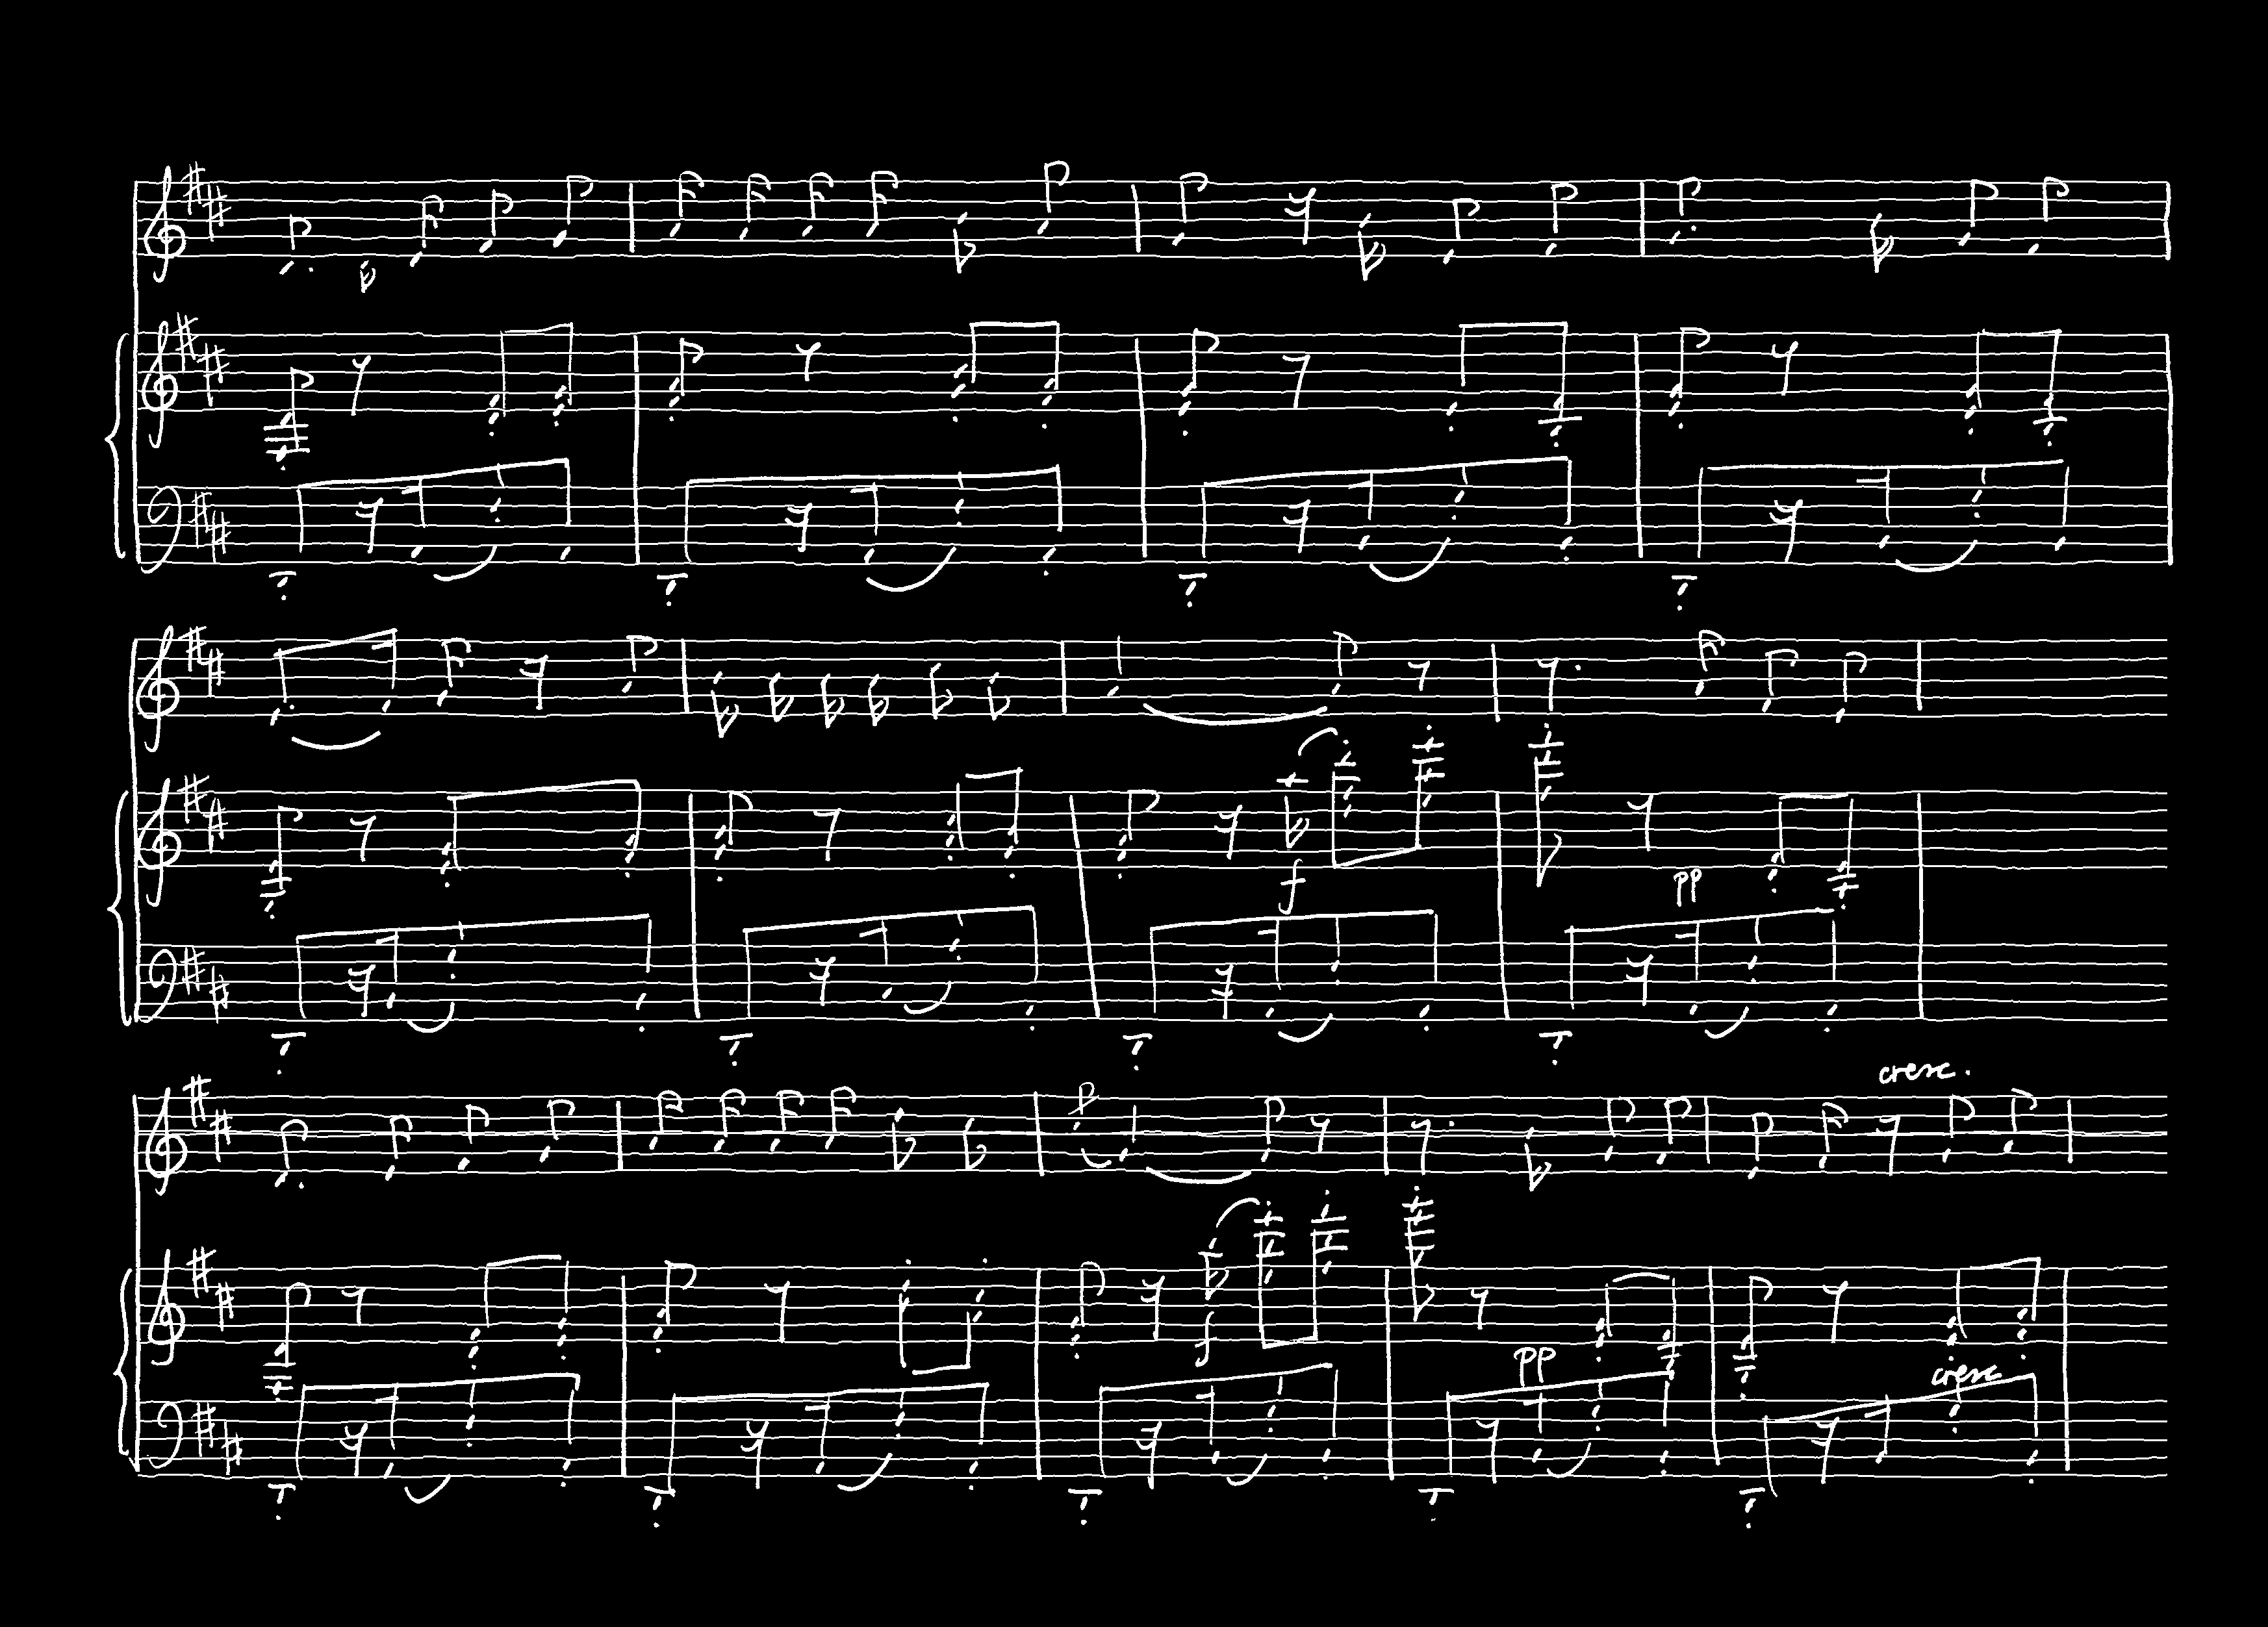 f
pp
cresc.
f
pp
cresc